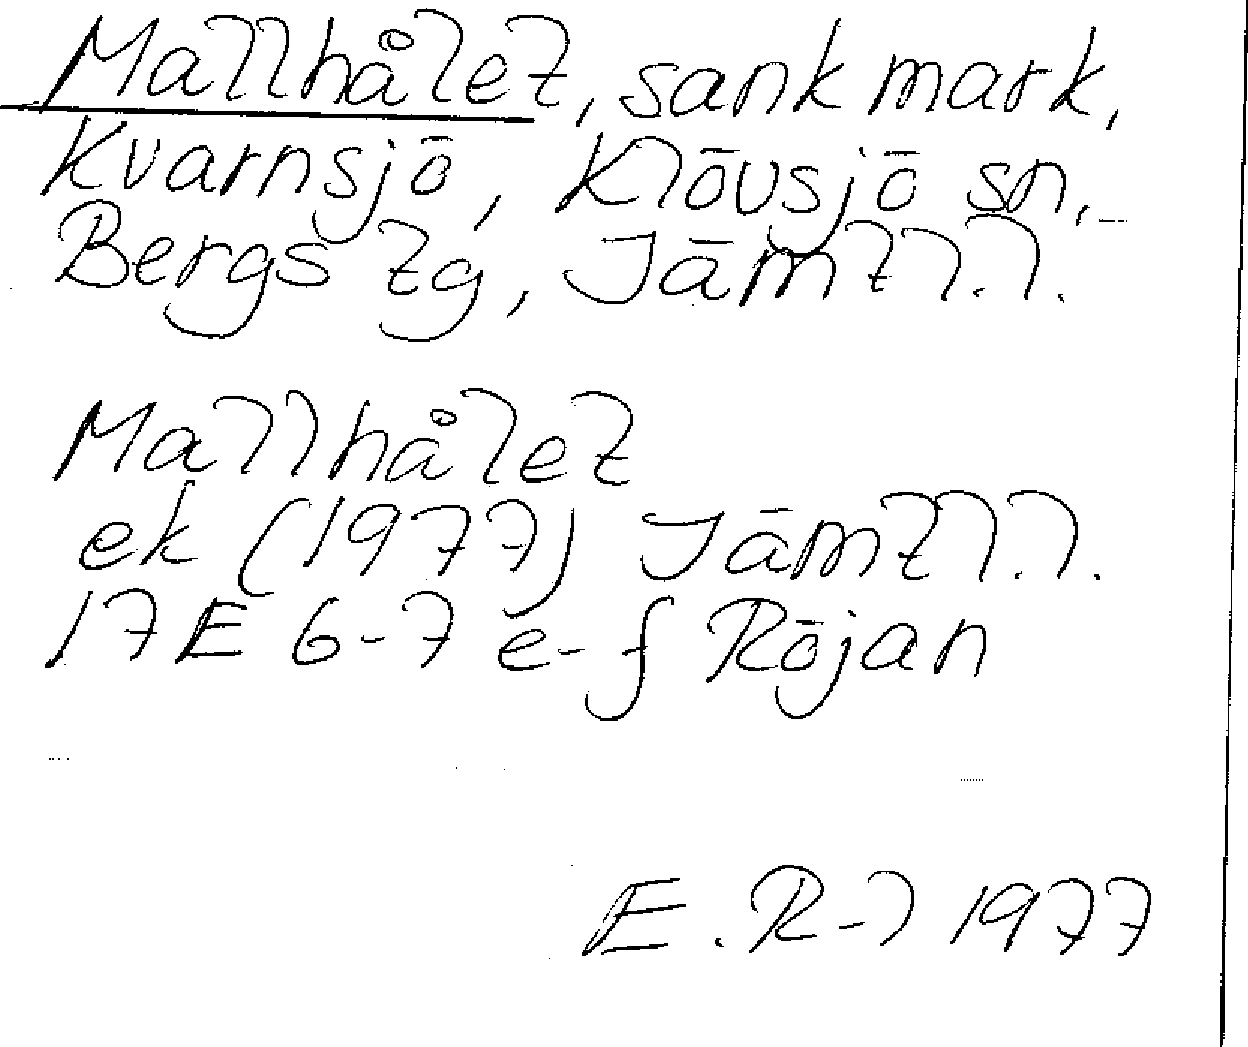 Mallhålet, sank mark,
Kvarnsjö, Klövsjö sn,
Bergs tg, Jämtl.l.
Mallhålet
ek (1977) Jämtl.l.
17E 6-7 e-f Röjan
E. R-l 1977